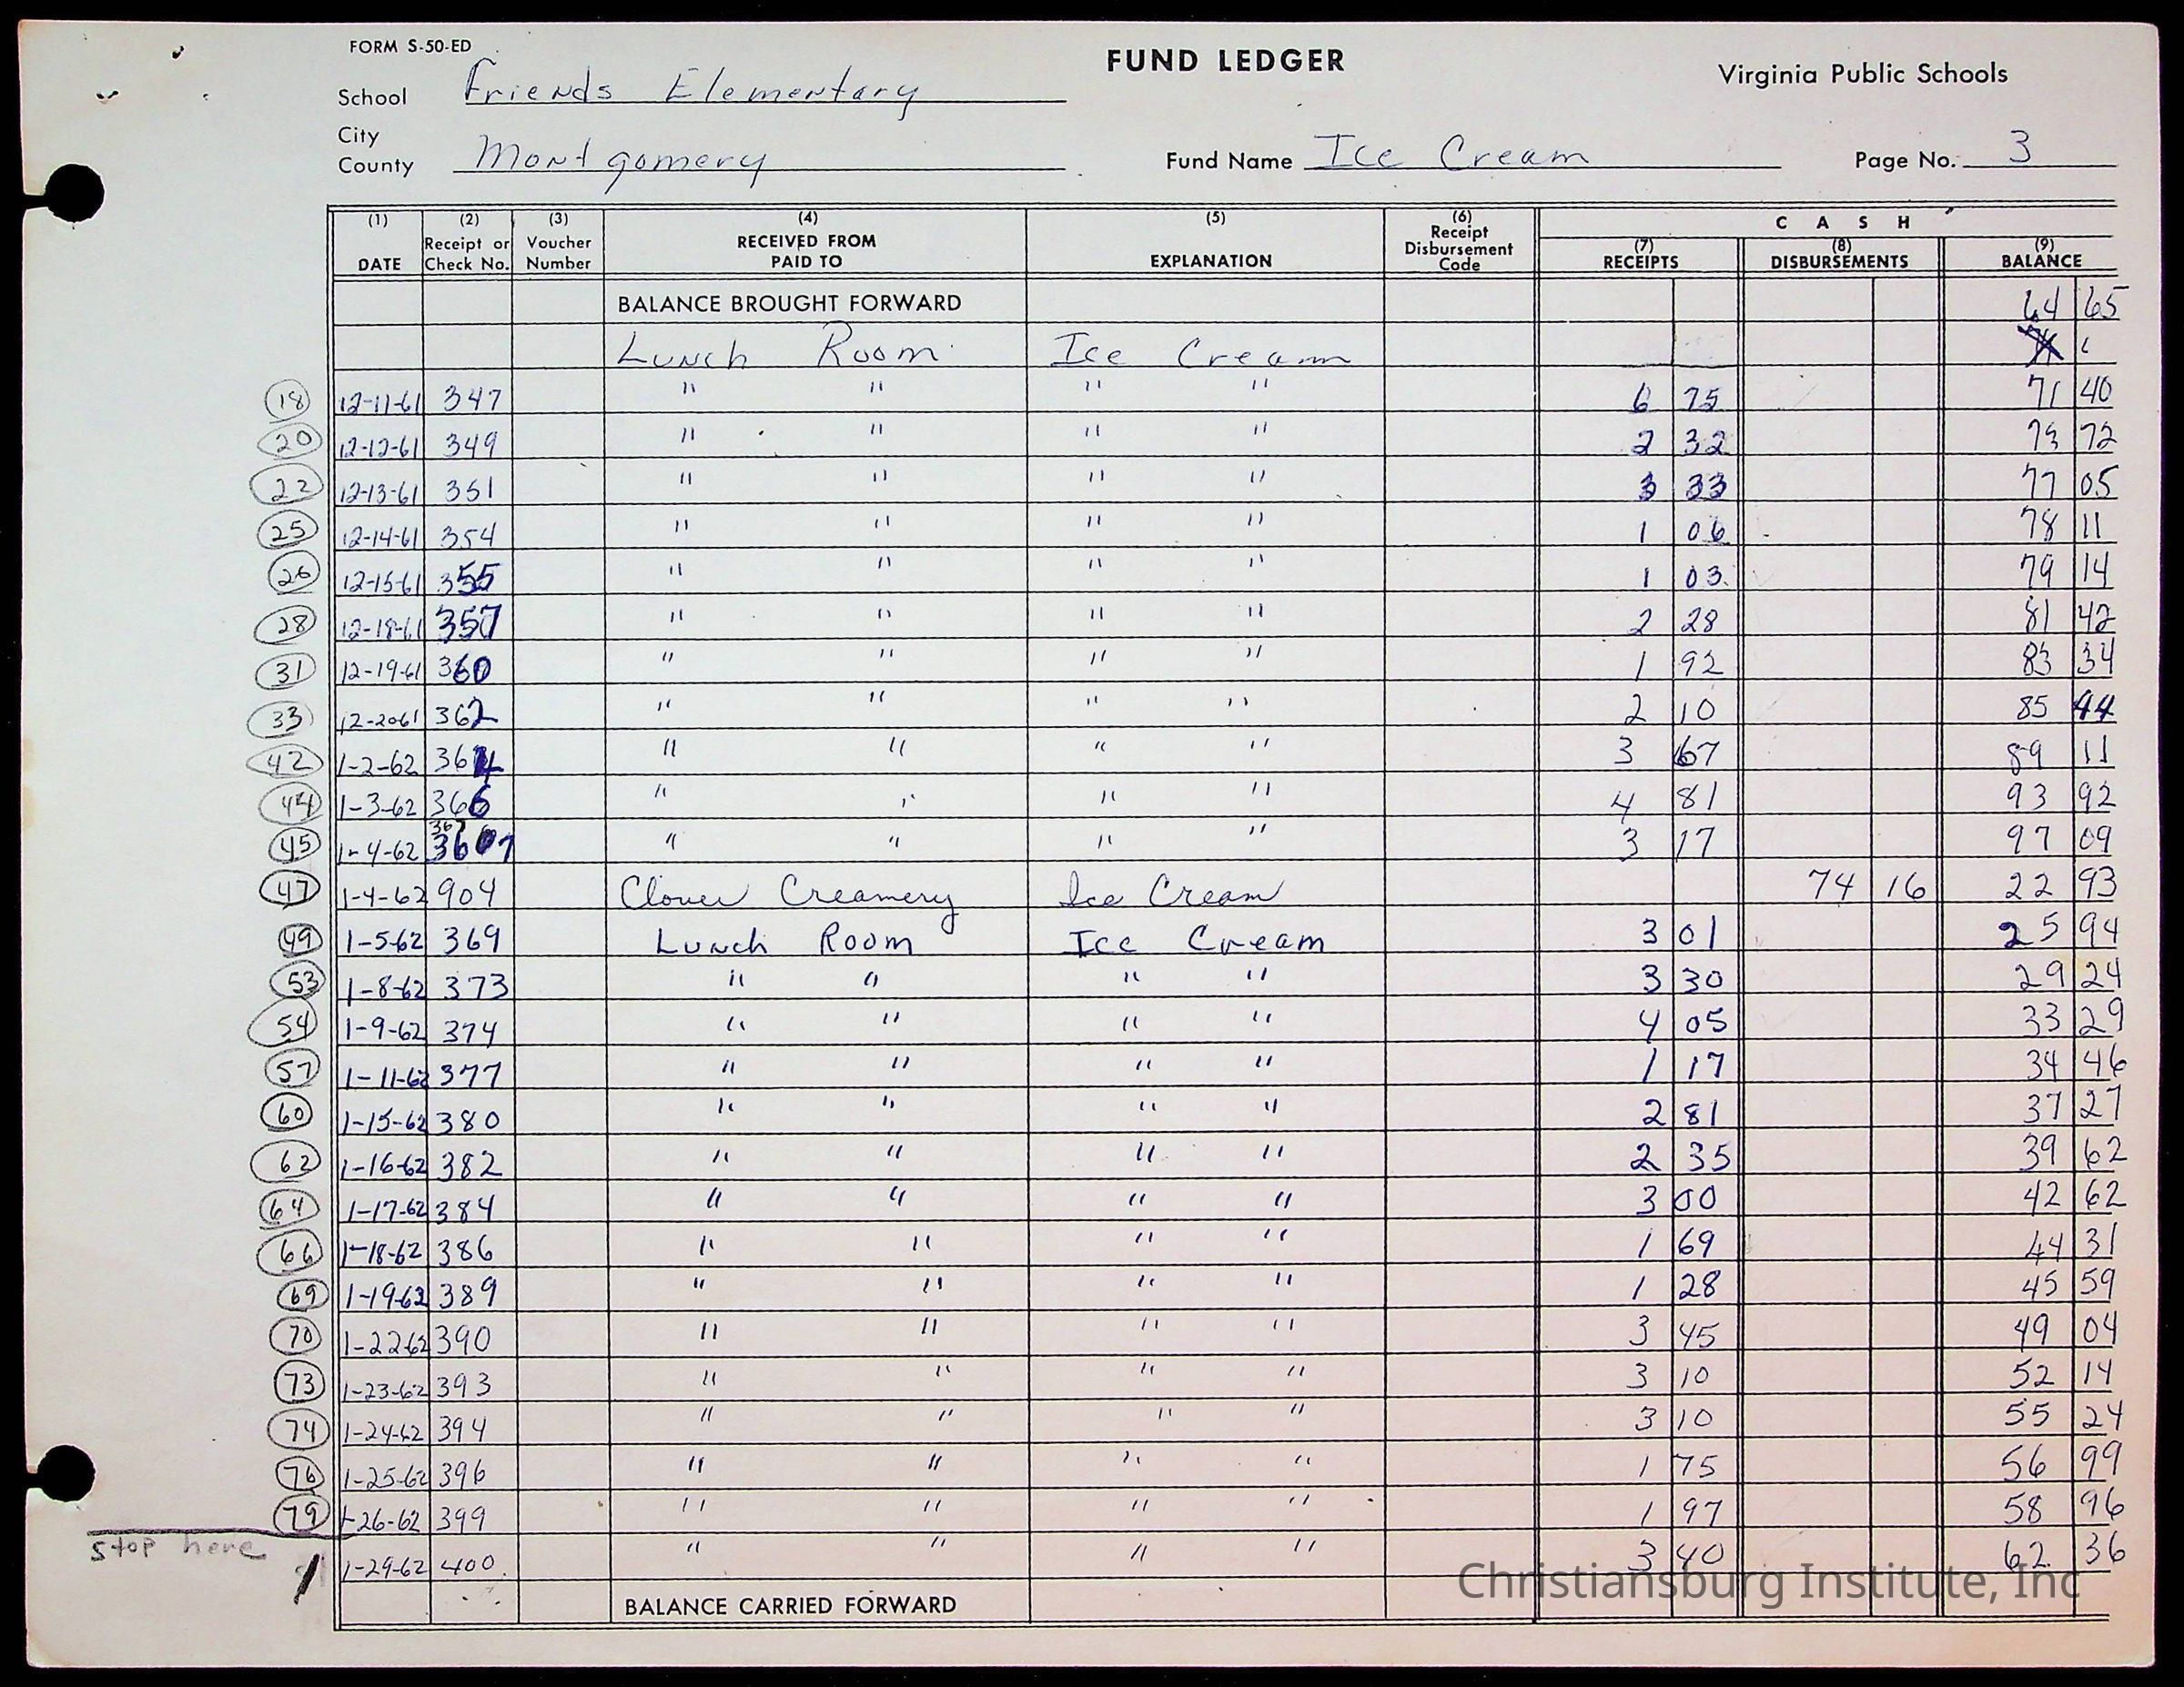 FORM S-50-ED
FUND LEDGER
Virginia Public Schools
School Friends Elementary
City
County Montgomery
Fund Name Ice Cream
Page No. 3
(1) DATE (2) Receipt or Check No. (3) Voucher Number (4) RECEIVED FROM PAID TO (5) EXPLANATION (6) Receipt Disbursement Code CASH (7) RECEIPTS (8) DISBURSEMENTS (9) BALANCE
BALANCE BROUGHT FORWARD 64 65
Lunch Room Ice Cream
18 12-11-61 347 " " " " 6 75 71 40
20 12-12-61 349 " " " " 2 32 73 72
22 12-13-61 351 " " " " 3 33 77 05
25 12-14-61 354 " " " " 1 06 78 11
26 12-15-61 355 " " " " 1 03 79 14
28 12-18-61 357 " " " " 2 28 81 42
31 12-19-61 360 " " " " 1 92 83 34
33 12-20-61 362 " " " " 2 10 85 44
42 1-2-62 364 " " " " 3 67 89 11
44 1-3-62 366 " " " " 4 81 93 92
45 1-4-62 367 " " " " 3 17 97 09
47 1-4-62 904 Clover Creamery Ice Cream 74 16 22 93
49 1-5-62 369 Lunch Room Ice Cream 3 01 25 94
53 1-8-62 373 " " " " 3 30 29 24
54 1-9-62 374 " " " " 4 05 33 29
57 1-11-62 377 " " " " 1 17 34 46
60 1-15-62 380 " " " " 2 81 37 27
62 1-16-62 382 " " " " 2 35 39 62
64 1-17-62 384 " " " " 3 00 42 62
66 1-18-62 386 " " " " 1 69 44 31
69 1-19-62 389 " " " " 1 28 45 59
70 1-22-62 390 " " " " 3 45 49 04
73 1-23-62 393 " " " " 3 10 52 14
74 1-24-62 394 " " " " 3 10 55 24
76 1-25-62 396 " " " " 1 75 56 99
79 1-26-62 399 " " " " 1 97 58 96
stop here
1-29-62 400 " " " " 3 40 62 36
Christiansburg Institute, Inc
BALANCE CARRIED FORWARD